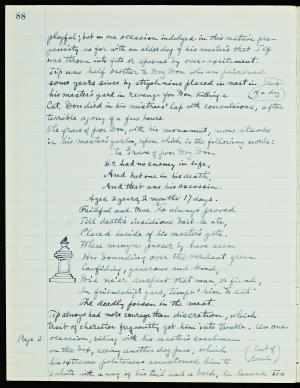 88
playful; but on one occasion indulged in this mature pro-
pensity so far with an old dog of his master's that Tip
was thrown into fits or spasms by over-excitement.
Tip was half brother to Don Don whom poisoned
some years since by strychnine placed in meat in
his master's yard in revenge for Don killing a
(of a dog)
Cat. Don died in his mistress' lap with convulsions, after
terrible agony of a few hours.
The grave of poor Don, with his monument, now stands
in his master's garden, upon which is the following words:
The Grave of poor Dog Don
He had no enemy in life,
And but one in his death,
And that was his assassin.
Aged 2 years, 2 months 17 days.
Faithful and true he always proved
Till death's insidious bait he ate,
Placed inside of his master's gate,
Where many a passer by have seen
His bounding over the verdant green
Confiding, generous and kind,
Would ne'er suspect that man, or fiend,
In friendship's garb, tempt him to eat
The deadly poison in the meat.
Tip always had more courage than discretion, which
trait of character frequently got him into trouble. On one
Page 3
occasion, riding with his master's coachman
on the box, seeing another dog pass, which
his extreme politeness accustomed him to
salute with a wag of his tail and a bark, he leaned too